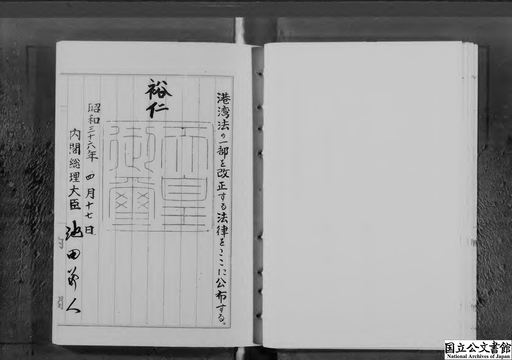 港湾法の一部を改正する法律をここに公布する。
裕仁
天皇御璽
昭和三十六年四月十七日
内閣総理大臣 池田勇人
国立公文書館
National Archives of Japan